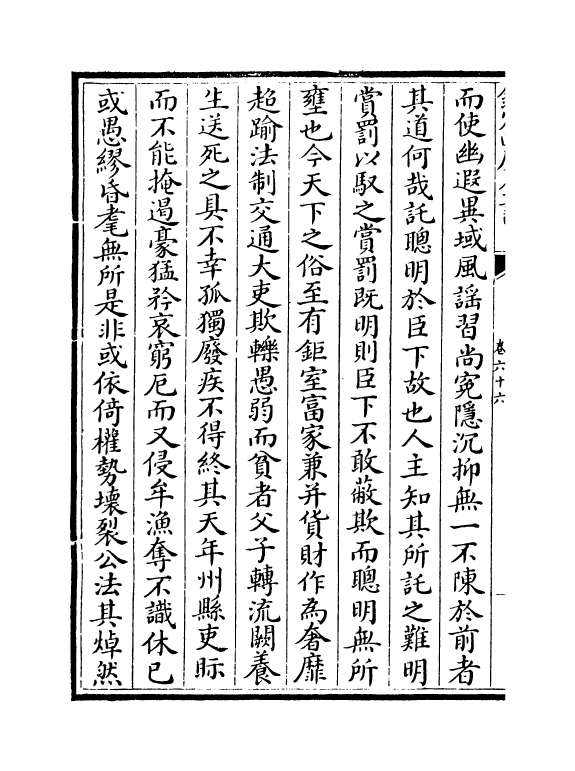 卷六十六
而使幽遐異域風謡習尚寃隱沉抑無一不陳於前者
其道何哉託聰明於臣下故也人主知其所託之難明
賞罰以馭之賞罰既明則臣下不敢蔽欺而聰明無所
壅也今天下之俗至有鉅室富家兼并貨財作為奢靡
超踰法制交通大吏欺轢愚弱而貧者父子轉流闕養
生送死之具不幸孤獨廢疾不得終其天年州縣吏眎
而不能掩遏豪猛矜哀窮厄而又侵牟漁奪不識休已
或愚繆昏耄無所是非或依倚權勢壊裂公法其焯然